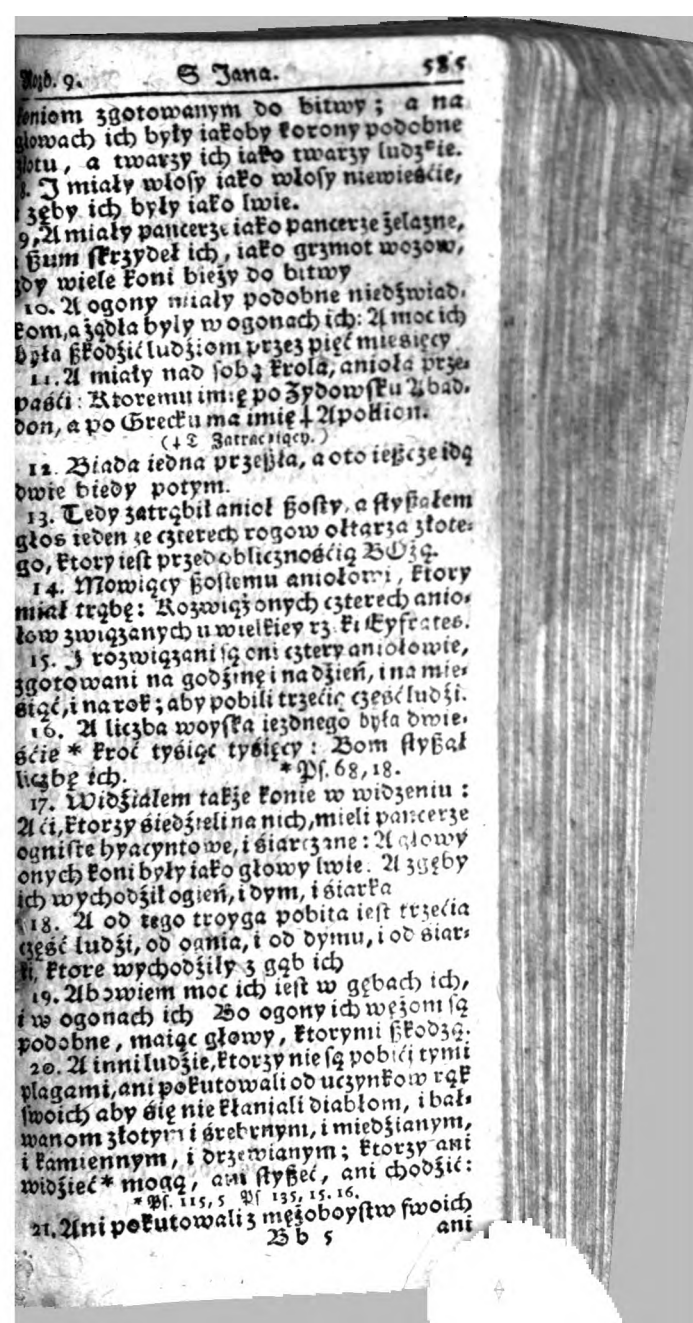 Rozd. 9. S Jana. 585
koniom zgotowanym do bitwy; a na
głowach ich były iakoby korony podobne
złotu, a twarzy ich iako twarzy ludzkie.
8. J miały włosy iako włosy niewieście,
i zęby ich były iako lwie.
9, A miały pancerze iako pancerze żelazne,
a szum skrzydeł ich, iako grzmot wozow,
gdy wiele koni bieży do bitwy
10. A ogony miały podobne niedźwiad-
kom, a żądła były w ogonach ich: A moc ich
była szkodzić ludziom przez pięć miesięcy
11. A miały nad sobą krola, anioła prze-
paści: Ktoremu imię po Zydowsku Abad-
don, a po Grecku ma imię ‡ Apollion.
(‡ T Zatracaiący.)
12. Biada iedna przeszła, a oto ieszcze idą
dwie biedy potym.
13. Tedy zatrąbił anioł szosty, a słyszałem
głos ieden ze czterech rogow ołtarza złote-
go, ktory iest przed oblicznością BOżą.
14. Mowiący szostemu aniołowi, ktory
miał trąbę: Rozwiąż onych czterech anio-
łow związanych u wielkiey rzeki Eyfrates.
15. J rozwiązani są oni cztery aniołowie,
zgotowani na godzinę i na dzień, i na mie-
siąc, i na rok; aby pobili trzecię część ludzi.
16. A liczba woyska iezdnego była dwie-
ście * kroć tysiąc tysięcy: Bom słyszał
liczbę ich. * Ps. 68, 18.
17. Widziałem także konie w widzeniu:
A ci, ktorzy siedzieli na nich, mieli pancerze
ogniste hyacyntowe, i siarczane: A głowy
onych koni były iako głowy lwie. A z gęby
ich wychodził ogień, i dym, i siarka
18. A od tego troyga pobita iest trzecia
część ludzi, od ognia, i od dymu, i od siar-
ki, ktore wychodziły z gąb ich
19. Abowiem moc ich iest w gębach ich,
i w ogonach ich Bo ogony ich wężom są
podobne, maiąc głowy, ktorymi szkodzą.
20. A inni ludzie, ktorzy nie są pobici tymi
plagami, ani pokutowali od uczynkow rąk
swoich aby się nie kłaniali diabłom, i bał-
wanom złotym i srebrnym, i miedzianym,
i kamiennym, i drzewianym; ktorzy ani
widzieć * mogą, ani słyszeć, ani chodzić:
* Ps. 115, 5 Ps 135, 15. 16.
21. Ani pokutowali z mężoboystw swoich
B b 5 ani